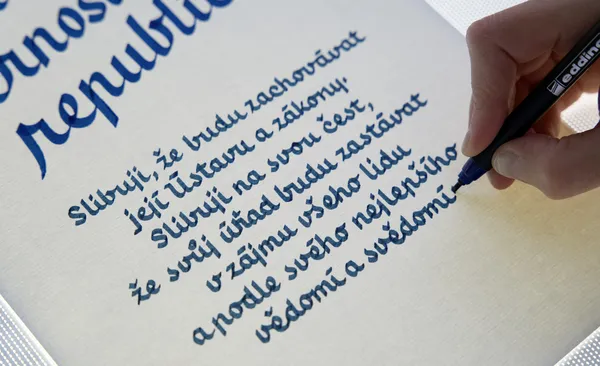 ornost
republi
Slibuji, že budu zachovávat
její Ústavu a zákony.
Slibuji na svou čest,
že svůj úřad budu zastávat
v zájmu všeho lidu
a podle svého nejlepšího
vědomí a svědomí
edding